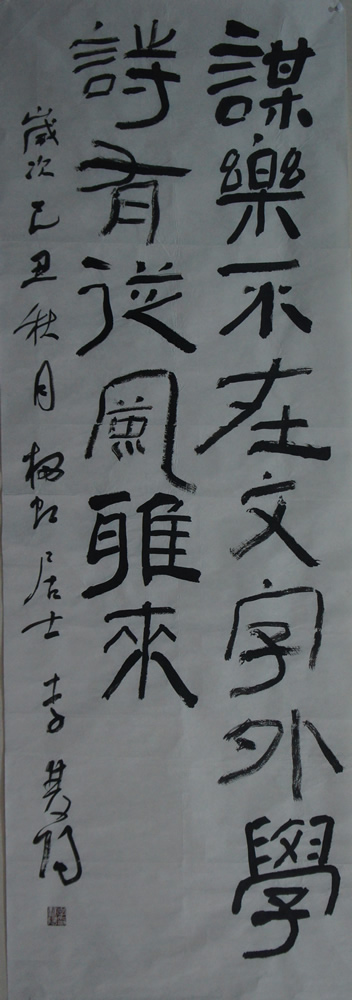 謀樂不在文字外學
詩有從風雅來
歲次己丑秋月 居士李